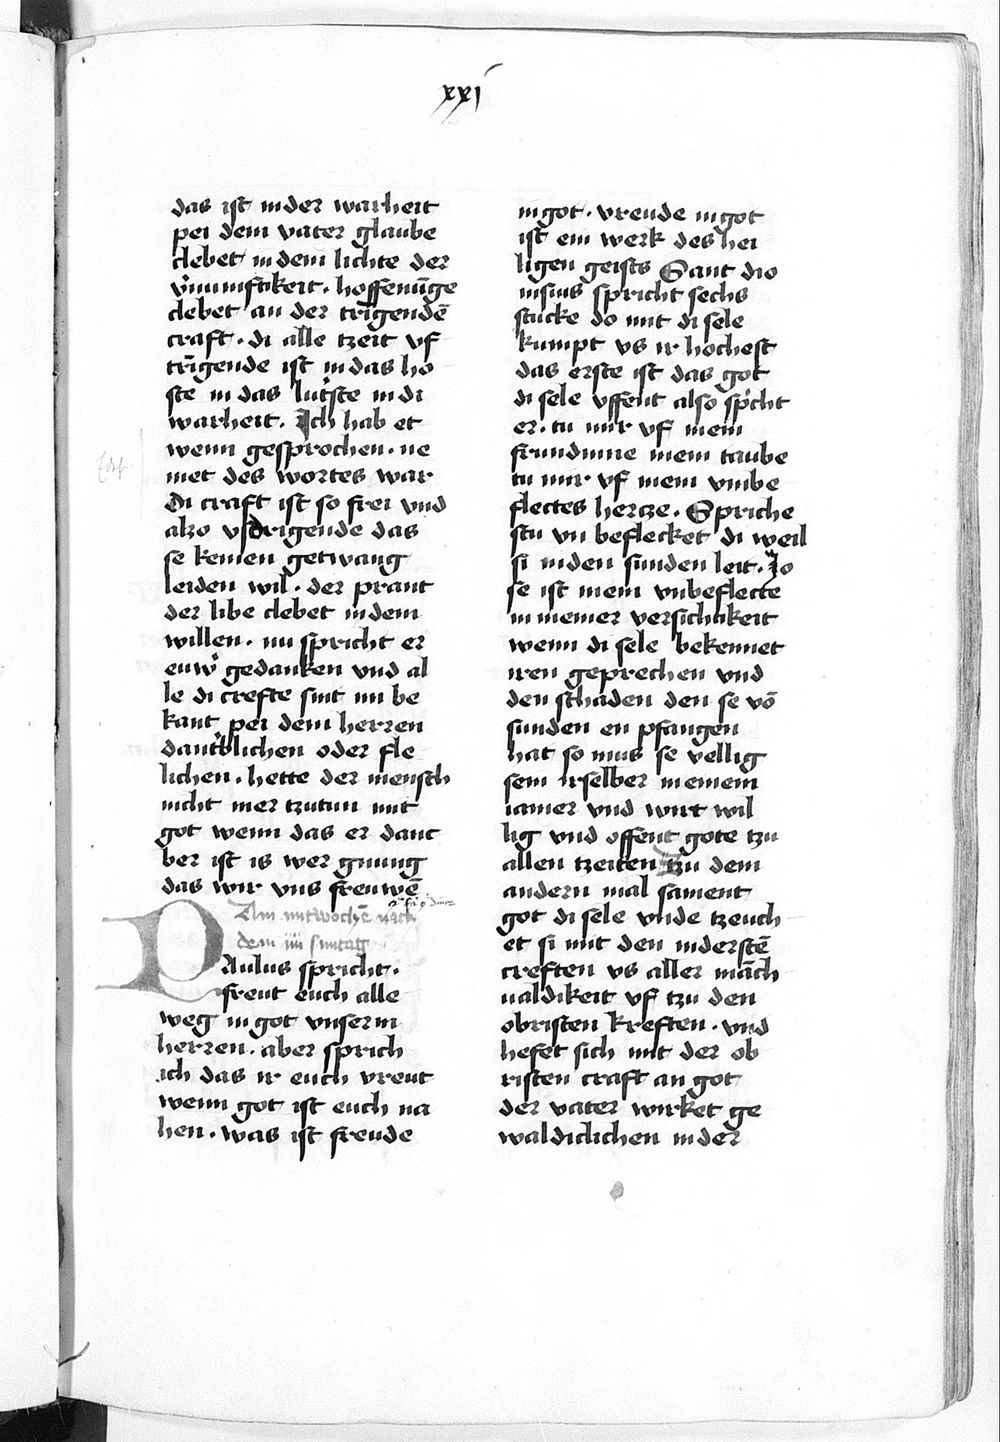 xxi
das ist inder warheit
pei dem vater glaube
clebet indem lichte der
v̓nunftikeit · hoffenūge
clebet an der trīgendē
craft · di alle tzeit vf
trīgende ist in das ho
ste in das lut̓ste in di
warheit. Ich hab et
wenn gesprochen · ne
met des wortes war
Di craft ist so frei vnd
also vfdrigende das
se keinen getwang
leiden wil · der prant
der libe clebet indem
willen · nu spricht er
euw̓ gedanken vnd al
le di crefte sint nu be
kant pei dem herren
dancb̓lichen oder fle
lichen · hette der mensch
nicht mer tzutun mit
got wenn das er danc
ber ist is wer gnung
das wir vns freuwē
Am mitwochē nach
dem iiii suntag
PAulus spricht ·
freut euch alle
weg in got vnserm
herren · aber sprich
ich das ir euch vreut
wenn got ist euch na
hen · was ist freude
in got · vreude in got
ist ein werk des hei
ligen geists Sant dio
nisius spricht sechs
stucke do mit di sele
kumpt vs ir hochest
das erste ist das got
di sele vffent also sp̓cht
er · tu mir vf mein
frundinne mein taube
tu mir vf mein vnbe
flectes hercze · Spriche
stu vn beflecket di weil
si inden sunden leit · Jo
se ist mein vnbeflecte
in meiner versichtikeit
wenn di sele bekennet
iren geprechen vnd
den schaden den se vō
sunden en pfangen
hat so mus se vellig
sein irselber in einem
iamer vnd wirt wil
lig vnd offent gote tzu
allen tzeiten Tzu dem
andern mal sament
got di sele vnde tzeuch
et si mit den inderstē
creften vs aller māch
ualdikeit vf tzu den
obristen kreften · vnd
hefet sich mit der ob
risten craft an got
der vater wirket ge
waldiclichen inder